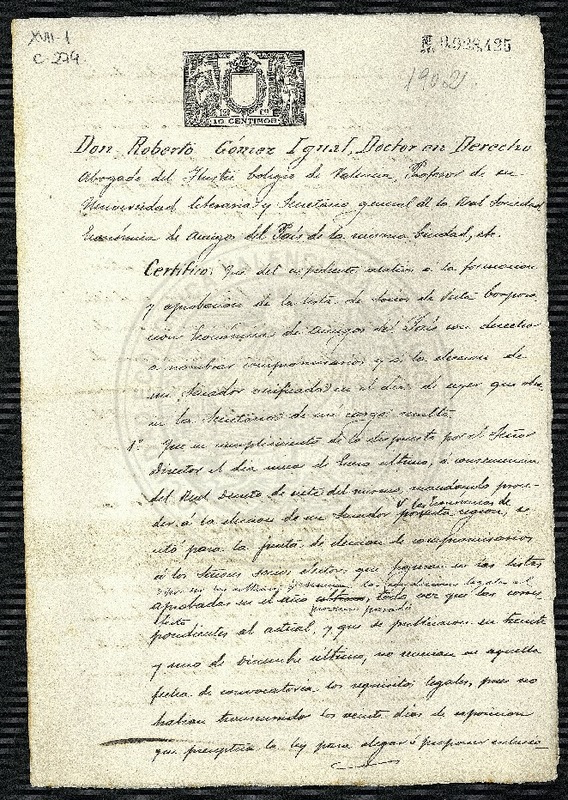 XVIII-1
C-274
N. 0.928,425
1902
10 CENTIMOS
Don Roberto Gómez Igual, Doctor en Derecho
Abogado del Ilustre Colegio de Valencia, Profesor de su
Universidad literaria y Secretario general de la Real Sociedad
Económica de Amigos del País de la misma Ciudad, etc.
Certifico: Que del expediente relativo á la formacion
y aprobacion de la lista de Socios de esta Corpora
cion Económica de Amigos del País con derecho
a nombrar compromisarios y á la eleccion de
un Senador verificada en el dia de ayer que obra
en la Secretaría de mi cargo resulta
1º Que en cumplimiento de lo dispuesto por el Señor
Director el dia once de Enero último, á consecuencia
del Real decreto de siete del mismo, mandando proce-
der á la eleccion de un Senador por las Económicas de
esta region, se
citó para la Junta de eleccion de compromisarios
á los Señores socios electores que figuran en las listas
las condiciones legales al
aprobadas en el año último, toda vez que las corres
próximo pasado
pondientes al actual, y que se publicaron en treinta
y uno de Diciembre último, no reunian en aquella
fecha de convocatoria los requisitos legales, pues no
habian transcurrido los veinte dias de exposicion
que preceptúa la ley para alegar ó proponer